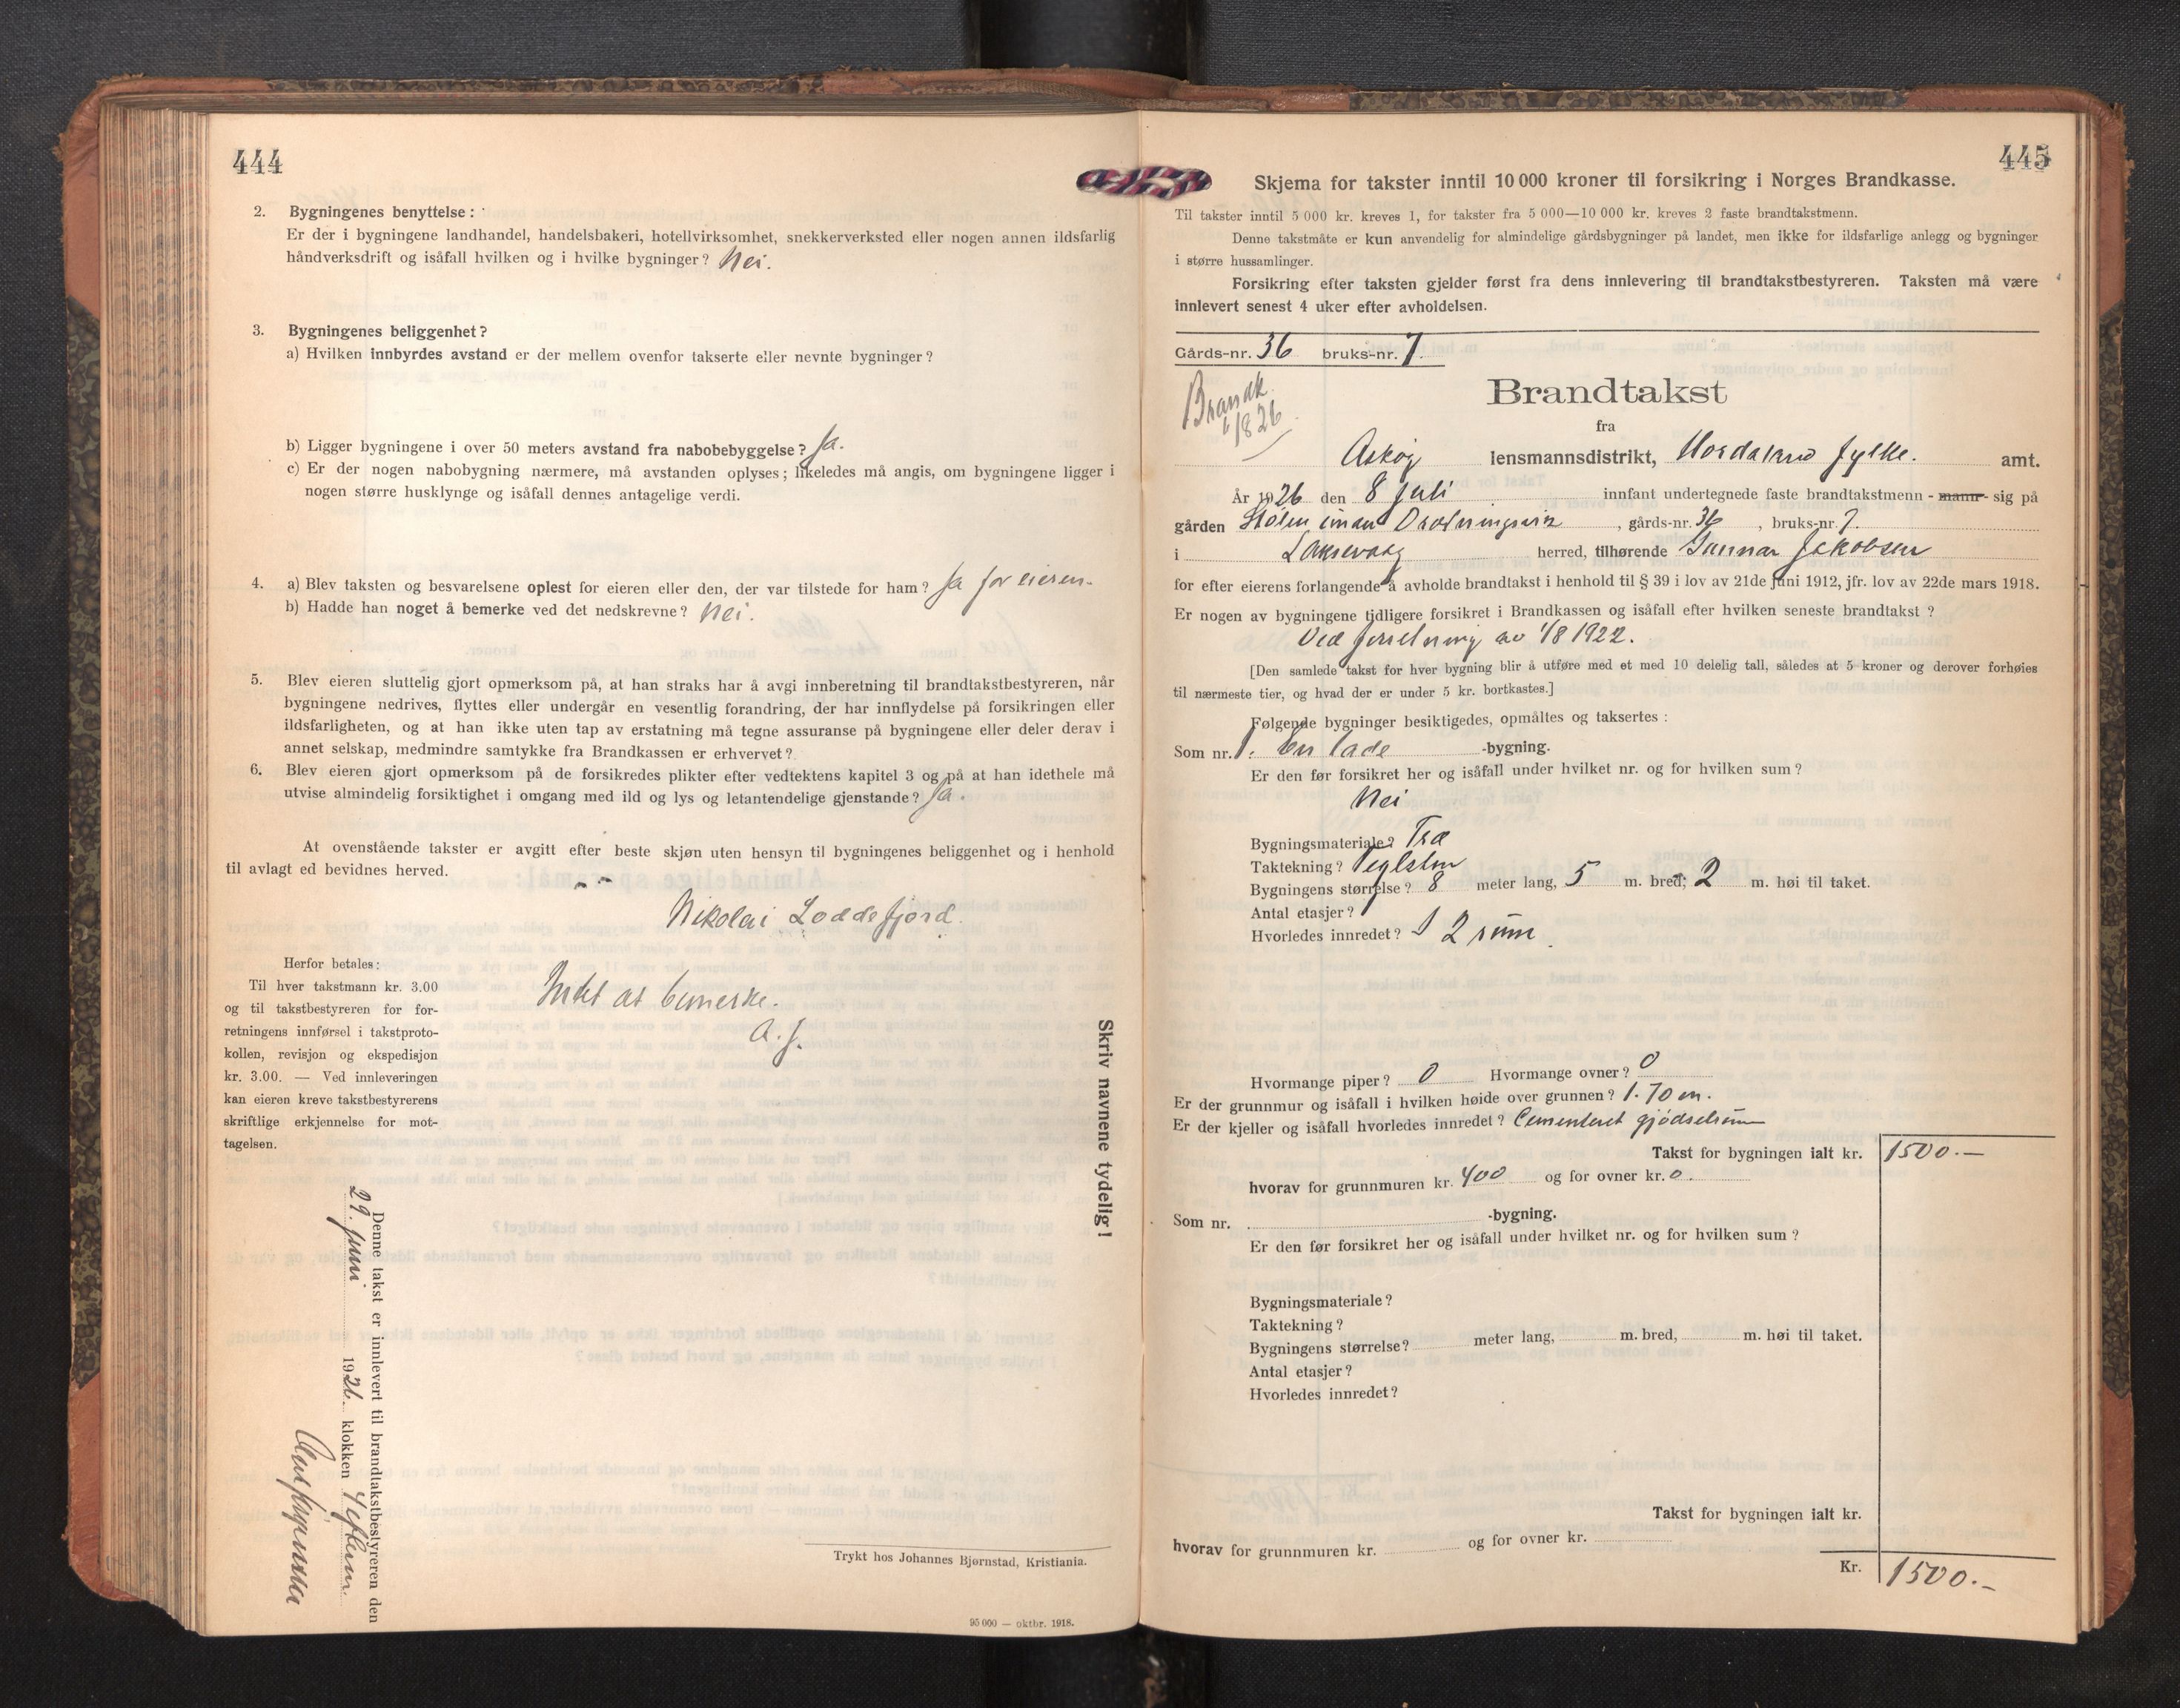 444
2. Bygningenes benyttelse:
Er der i bygningene landhandel, handelsbakeri, hotellvirksomhet, snekkerverksted eller nogen annen ildsfarlig
håndverksdrift og isåfall hvilken og i hvilke bygninger? Nei.
3. Bygningenes beliggenhet?
a) Hvilken innbyrdes avstand er der mellem ovenfor takserte eller nevnte bygninger?
b) Ligger bygningene i over 50 meters avstand fra nabobebyggelse? Ja.
c) Er der nogen nabobygning nærmere, må avstanden oplyses; likeledes må angis, om bygningene ligger i
nogen større husklynge og isåfall dennes antagelige verdi.
4. a) Blev taksten og besvarelsene oplest for eieren eller den, der var tilstede for ham? Ja for eieren.
b) Hadde han noget å bemerke ved det nedskrevne? Nei.
5. Blev eieren sluttelig gjort opmerksom på, at han straks har å avgi innberetning til brandtakstbestyreren, når
bygningene nedrives, flyttes eller undergår en vesentlig forandring, der har innflydelse på forsikringen eller
ildsfarligheten, og at han ikke uten tap av erstatning må tegne assuranse på bygningene eller deler derav i
annet selskap, medmindre samtykke fra Brandkassen er erhvervet?
6. Blev eieren gjort opmerksom på de forsikredes plikter efter vedtektens kapitel 3 og på at han idethele må
utvise almindelig forsiktighet i omgang med ild og lys og letantendelige gjenstande? Ja.
At ovenstående takster er avgitt efter beste skjøn uten hensyn til bygningenes beliggenhet og i henhold
til avlagt ed bevidnes herved.
Nikolai Loddefjord.
Herfor betales:
Til hver takstmann kr. 3.00
og til takstbestyreren for for-
retningens innførsel i takstproto-
kollen, revisjon og ekspedisjon
kr. 3.00. — Ved innleveringen
kan eieren kreve takstbestyrerens
skriftlige erkjennelse for mot-
tagelsen.
Intet at bemerke.
A. J.
Skriv navnene tydelig!
Denne takst er innlevert til brandtakstbestyreren den
29. juni 1926. klokken 4 efterm.
Trykt hos Johannes Bjørnstad, Kristiania.
95 000 — oktbr. 1918.
445
Skjema for takster inntil 10 000 kroner til forsikring i Norges Brandkasse.
Til takster inntil 5 000 kr. kreves 1, for takster fra 5 000—10 000 kr. kreves 2 faste brandtakstmenn.
Denne takstmåte er kun anvendelig for almindelige gårdsbygninger på landet, men ikke for ildsfarlige anlegg og bygninger
i større hussamlinger.
Forsikring efter taksten gjelder først fra dens innlevering til brandtakstbestyreren. Taksten må være
innlevert senest 4 uker efter avholdelsen.
Gårds-nr. 36 bruks-nr. 7.
Brandk.
6/8 26
Brandtakst
fra
Askøy lensmannsdistrikt, Hordaland fylke. amt.
År 1926 den 8 juli innfant undertegnede faste brandtakstmenn - mann - sig på
gården Stølen innan Drotningsvik, gårds-nr. 36, bruks-nr. 7.
i Laksevaag herred, tilhørende Gunnar Jakobsen
for efter eierens forlangende å avholde brandtakst i henhold til § 39 i lov av 21de juni 1912, jfr. lov av 22de mars 1918.
Er nogen av bygningene tidligere forsikret i Brandkassen og isåfall efter hvilken seneste brandtakst?
Ved forretning av 1/8 1922.
[Den samlede takst for hver bygning blir å utføre med et med 10 delelig tall, således at 5 kroner og derover forhøies
til nærmeste tier, og hvad der er under 5 kr. bortkastes.]
Følgende bygninger besiktigedes, opmåltes og taksertes:
Som nr. 1. En lade -bygning.
Er den før forsikret her og isåfall under hvilket nr. og for hvilken sum?
Nei
Bygningsmateriale? Træ
Taktekning? Teglsten
Bygningens størrelse? 8 meter lang, 5 m. bred, 2 m. høi til taket.
Antal etasjer? 1
Hvorledes innredet? I 2 rum
Hvormange piper? 0 Hvormange ovner? 0
Er der grunnmur og isåfall i hvilken høide over grunnen? 1.70 m.
Er der kjeller og isåfall hvorledes innredet? Cementeret gjødselrum
Takst for bygningen ialt kr. 1500.—
hvorav for grunnmuren kr. 400 og for ovner kr. 0.
Som nr. -bygning.
Er den før forsikret her og isåfall under hvilket nr. og for hvilken sum?
Bygningsmateriale?
Taktekning?
Bygningens størrelse? meter lang, m. bred, m. høi til taket.
Antal etasjer?
Hvorledes innredet?
Takst for bygningen ialt kr.
hvorav for grunnmuren kr. og for ovner kr.
Kr. 1500.—